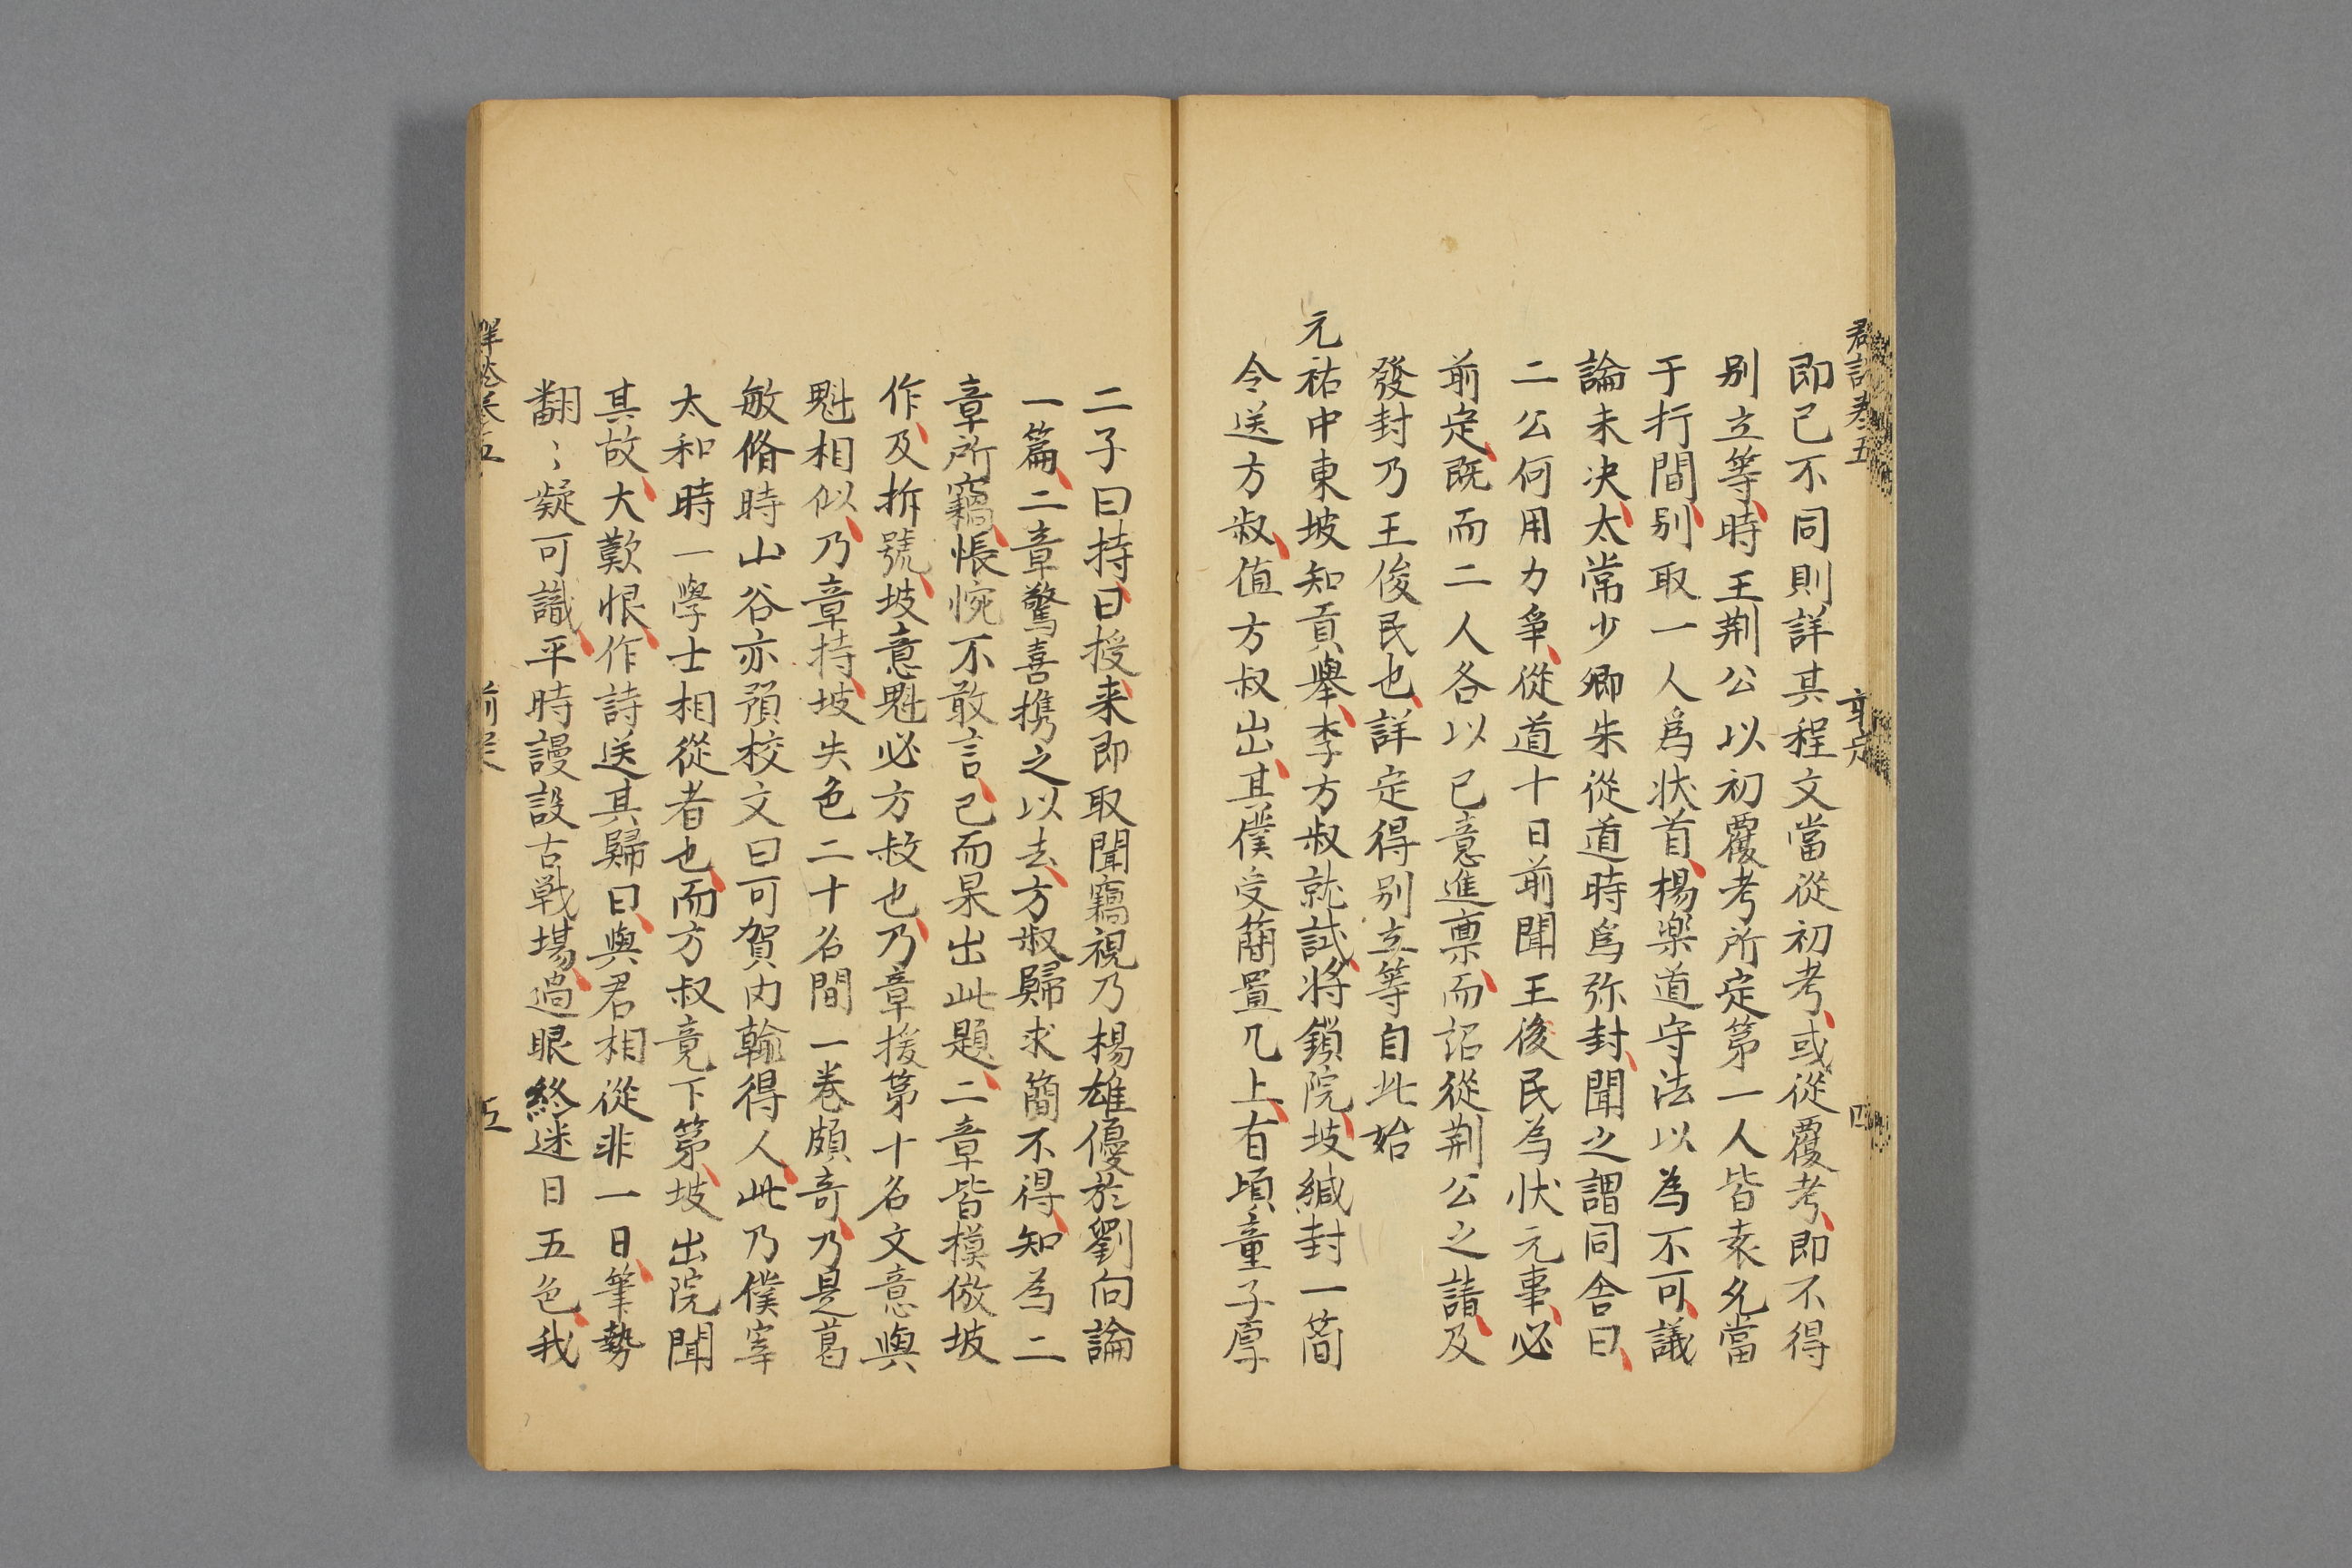 卷五
四
即已不同則詳其程文當從初考或從覆考即不得
别立等時王荆公以初覆考所定第一人皆未允當
于行間别取一人爲狀首楊樂道守法以為不可議
論未决太常少卿朱從道時爲弥封聞之謂同舍曰
二公何用力爭從道十日前聞王後民為状元事必
前定既而二人各以已意進稟而詔從荆公之請及
發封乃王俊民也詳定得别立等自此始
元祐中東坡知貢舉李方叔就試將鎖院坡緘封一简
令送方叔值方叔出其僕受簡置几上有頃童子厚
二子曰持曰授来即取聞竊視乃楊雄優於劉向論
一篇二章驚喜携之以去方叔歸求簡不得知為二
章所竊悵惋不敢言已而果出此題二章皆模倣坡
作及拆號坡意魁必方叔也乃章援第十名文意與
魁相似乃章持坡失色二十名間一卷頗奇乃是葛
敏脩時山谷亦預校文曰可賀内翰得人此乃僕宰
太和時一學士相從者也而方叔竟下第坡出院聞
其故大歎恨作詩送其歸曰與君相從非一日筆勢
翻〻疑可識平時謾設古戦塲過眼終迷日五色我
卷五
五